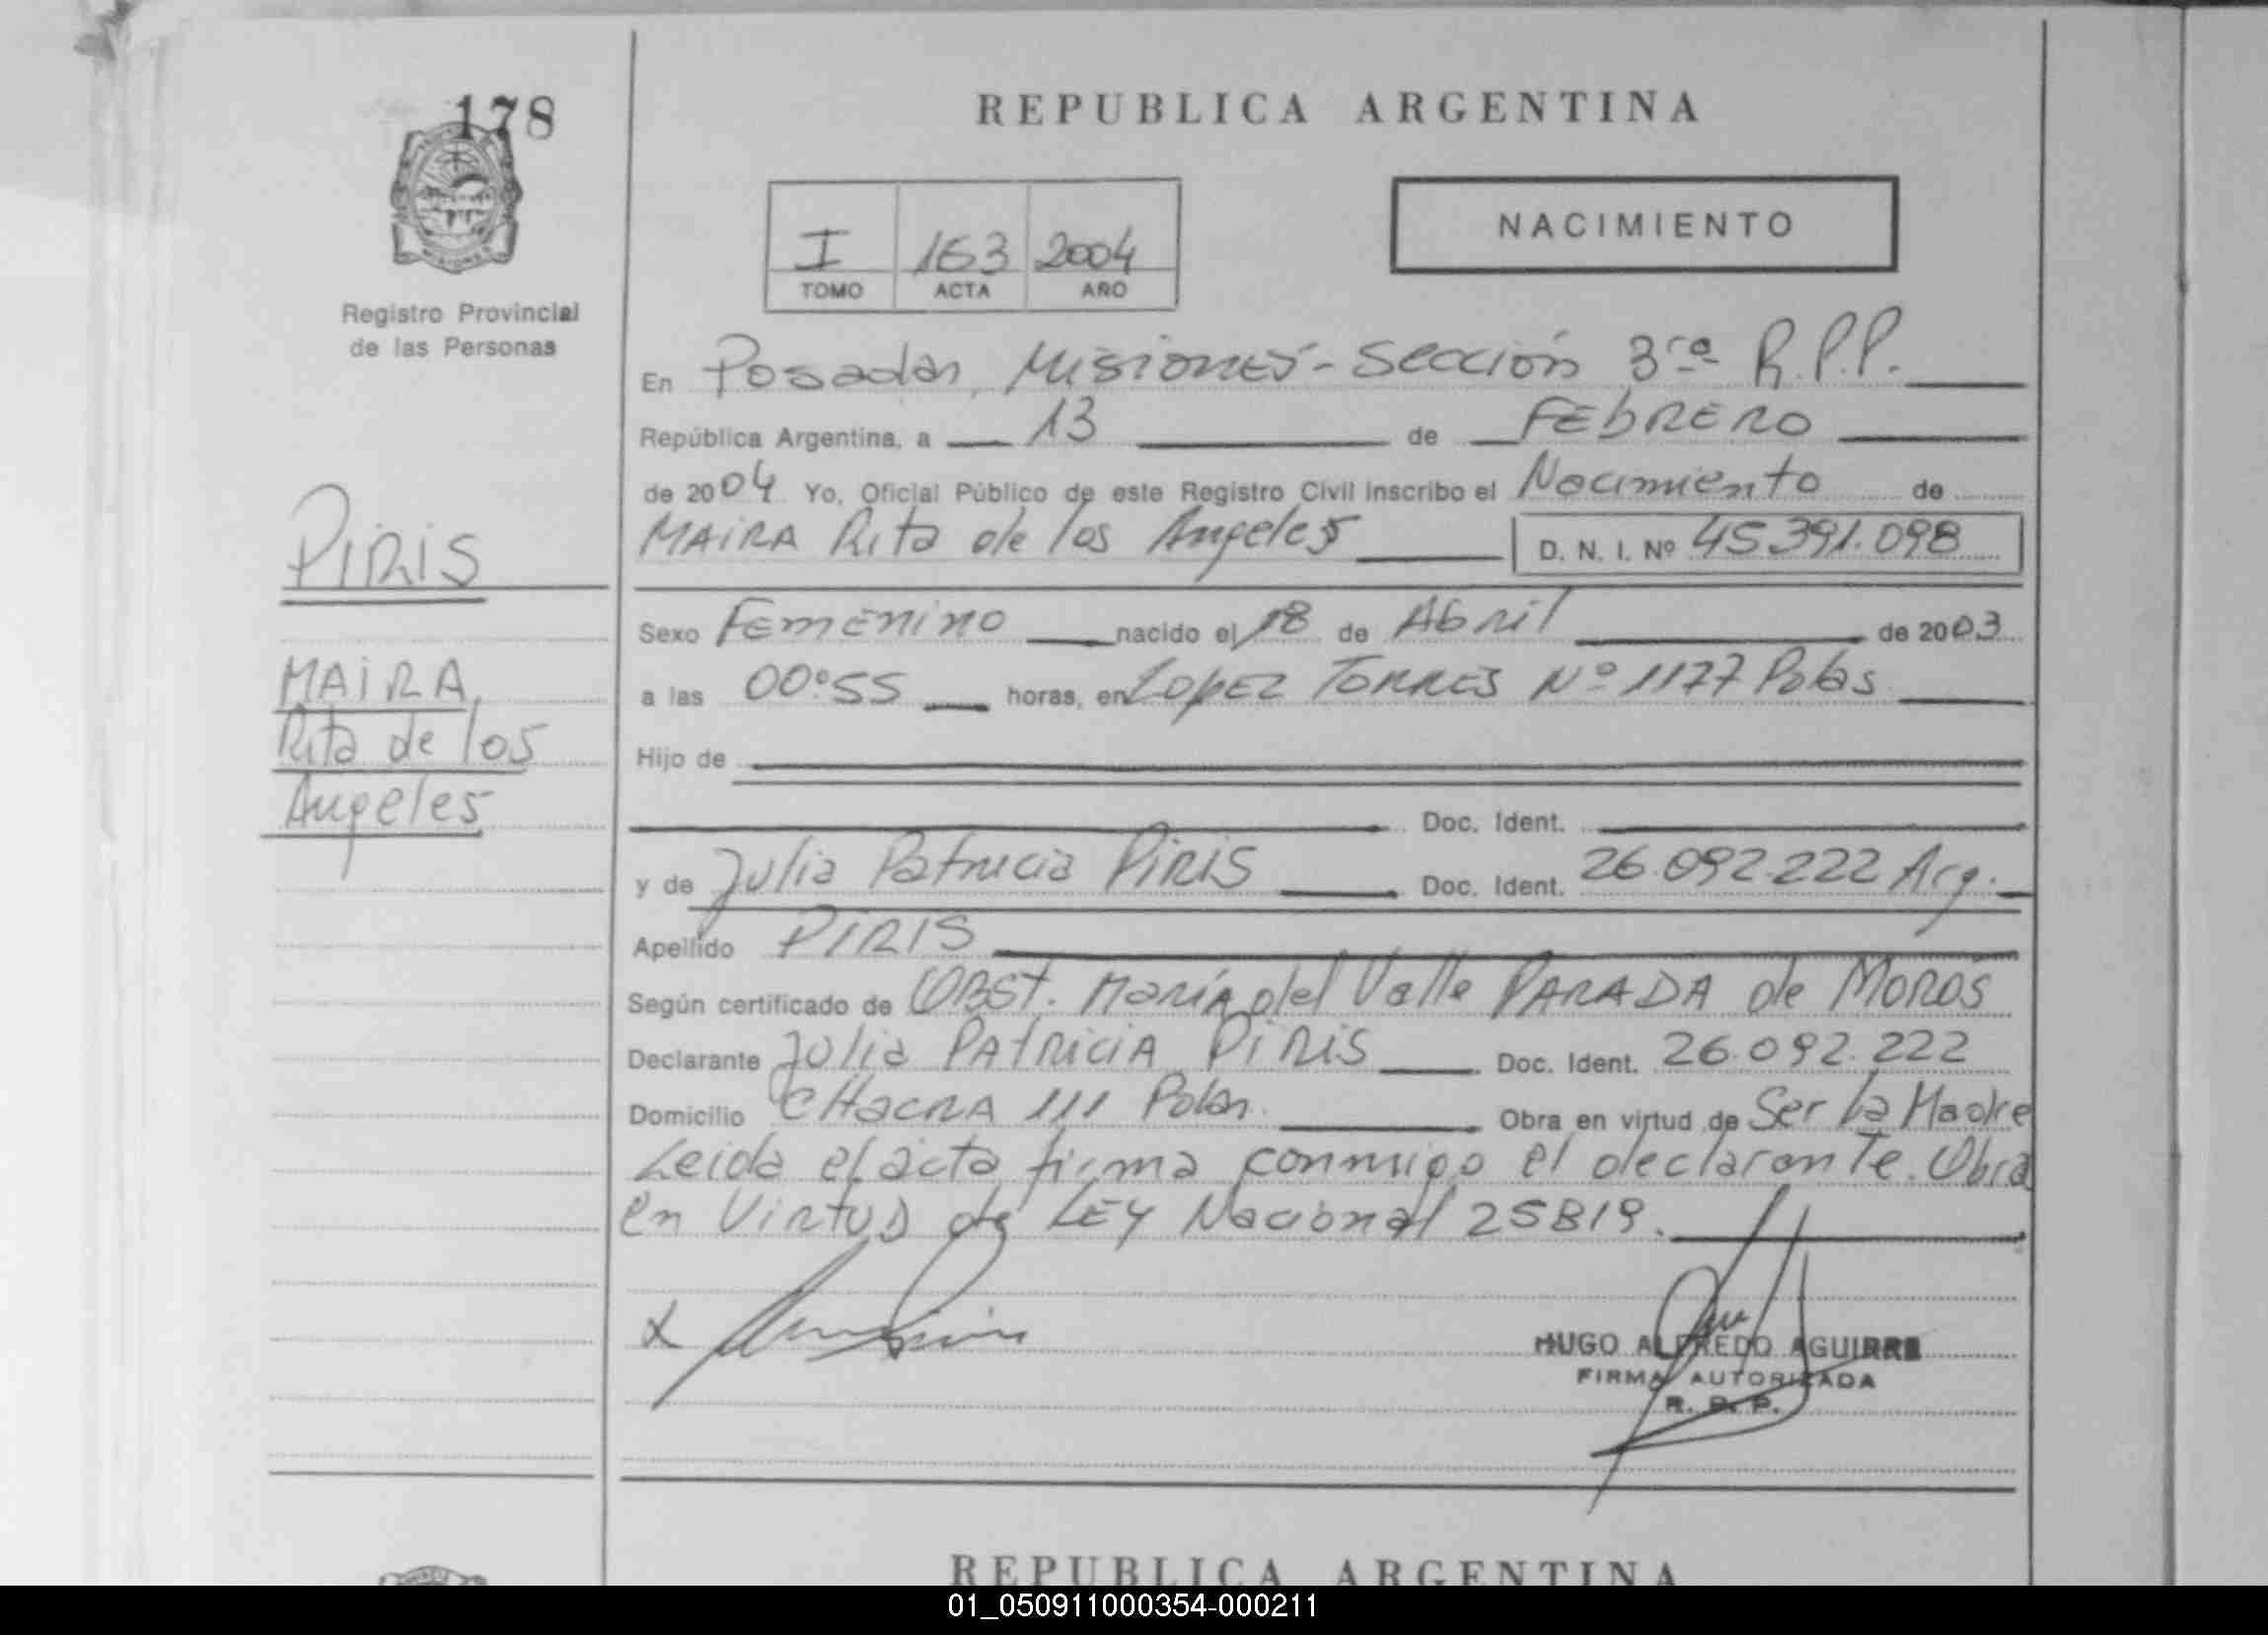 178
REPUBLICA ARGENTINA
NACIMIENTO
I 163 2004
TOMO ACTA AÑO
Registro Provincial
de las Personas
En Posadas, Misiones - Sección 3ra R.P.P.
República Argentina, a 13 de FEBRERO
de 2004 Yo, Oficial Público de este Registro Civil inscribo el Nacimiento de
MAIRA Rita de los Angeles D. N. I. Nº 45.391.098
PIRIS
MAIRA
Rita de los
Angeles
Sexo Femenino nacido el 18 de Abril de 2003
a las 00:55 horas, en Lopez TORRES Nº 1177 Pdas
Hijo de
Doc. Ident.
y de Julia Patricia PIRIS Doc. Ident. 26.092.222 Arg.
Apellido PIRIS
Según certificado de OBST. María del Valle PARADA de MOROS
Declarante Julia PATRICIA PIRIS Doc. Ident. 26.092.222
Domicilio CHACRA 111 Pdas. Obra en virtud de Ser la Madre
Leida el acta firma conmigo el declarante. Obra
en Virtud de LEY Nacional 25819.
HUGO ALFREDO AGUIRRE
FIRMA AUTORIZADA
R. P. P.
REPUBLICA ARGENTINA
01_050911000354-000211